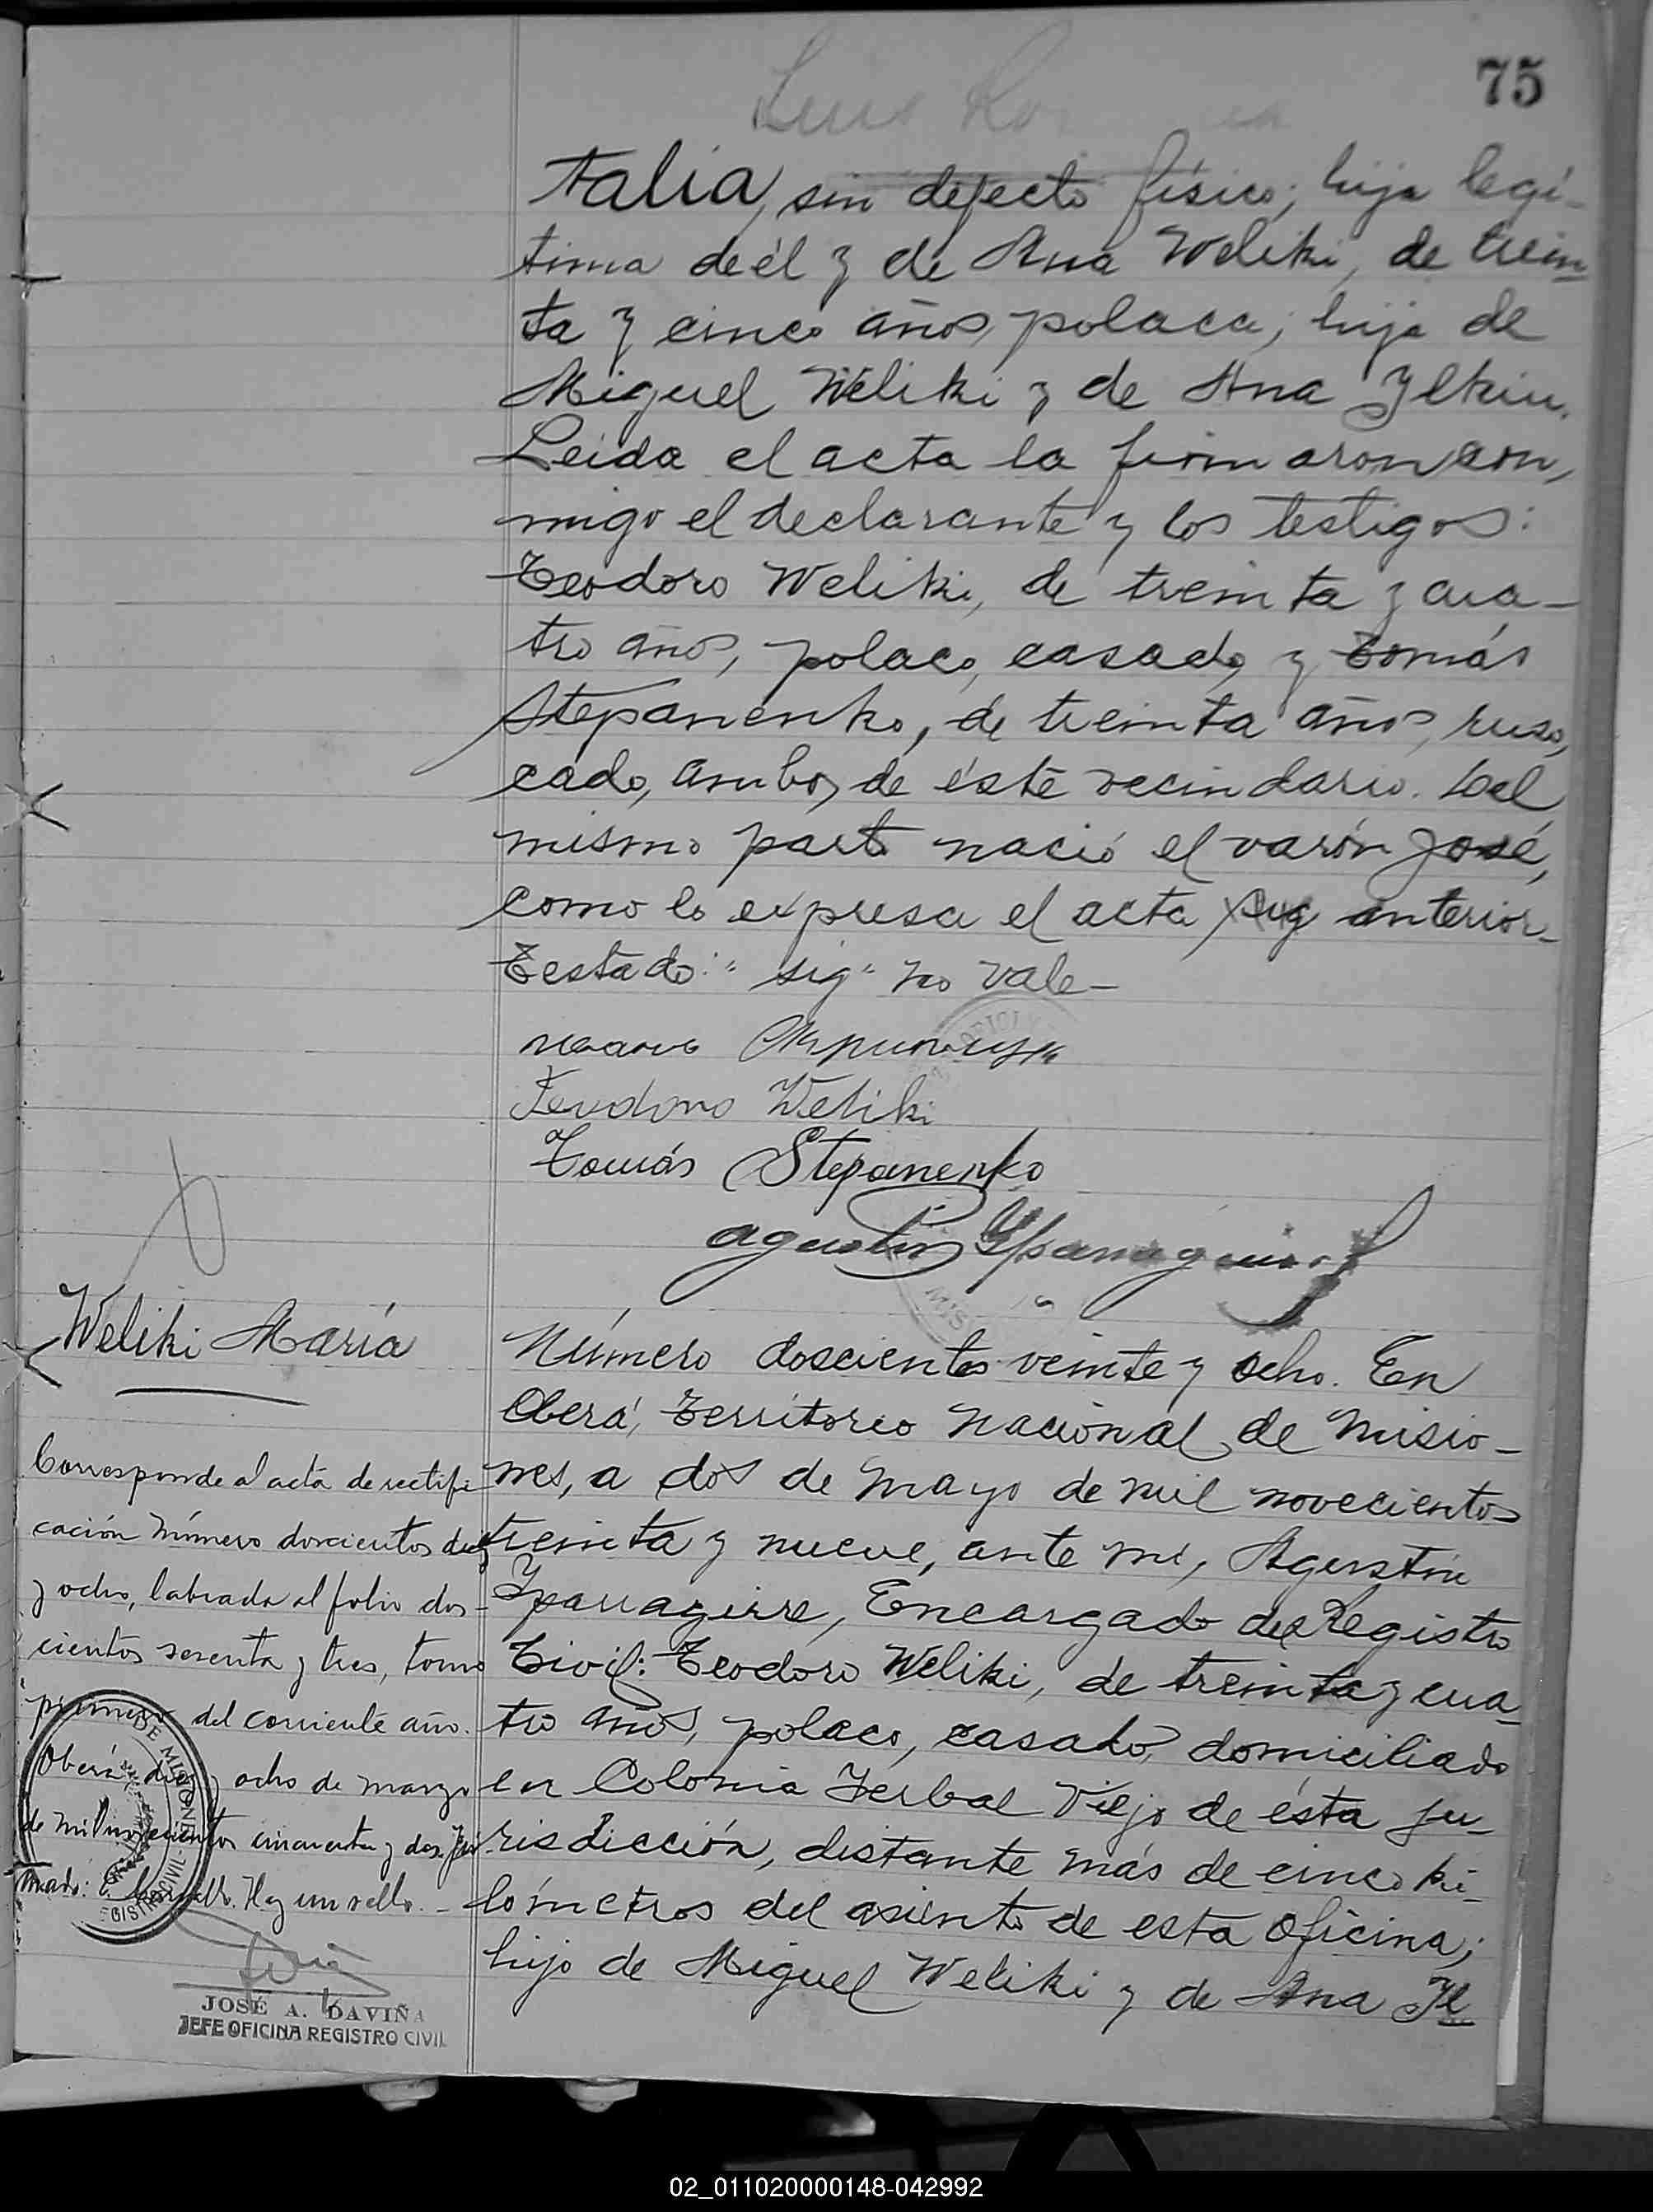 75
Luis
talia, sin defecto físico; hija legí-
tima de él y de Ana Weliki, de trein-
ta y cinco años, polaca; hija de
Miguel Weliki y de Ana Ylkiu.
Leida el acta la firmaron con,
migo el declarante y los testigos:
Teodoro Weliki, de treinta y cua-
tro años, polaco, casado, y Tomás
Stepanenko, de treinta años, ruso,
cado, ambos de éste vecindario. Del
mismo parto nació el varón José,
como lo expresa el acta sig anterior-
Testado: "sig" no vale-
Teodoro Weliki
Tomás Stepanenko
Agustín Yparraguirre
Weliki María
Número doscientos veinte y ocho. En
Oberá, Territorio Nacional de Misio-
nes, a dos de Mayo de mil novecientos
treinta y nueve, ante mí, Agustín
Yparraguirre, Encargado del Registro
Civil: Teodoro Weliki, de treinta y cua-
tro años, polaco, casado, domiciliado
en Colonia Yerbal Viejo de ésta ju-
risdicción, distante más de cinco ki-
lómetros del asiento de esta Oficina;
hijo de Miguel Weliki y de Ana Yl
Corresponde al acta de rectifi-
cación número doscientos diez
y ocho, labrada al folio dos-
cientos sesenta y tres, tomo
primero del corriente año.
Oberá, diez y ocho de marzo
de mil novecientos cincuenta y dos. Fir-
mado: Hay un sello.-
DE MISIONES
REGISTRO CIVIL
JOSÉ A. DAVIÑA
JEFE OFICINA REGISTRO CIVIL
02_011020000148-042992